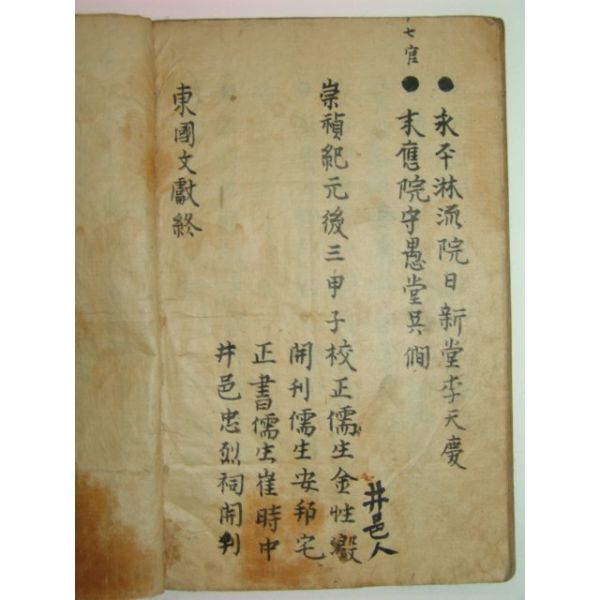 ●永平淋流院日新堂李天慶
七官
●末應院守愚堂吳僩
崇禎紀元後三甲子校正儒生金性
井邑人
開刊儒生安邦宅
正書儒生崔時中
井邑忠烈祠開刊
東國文獻終